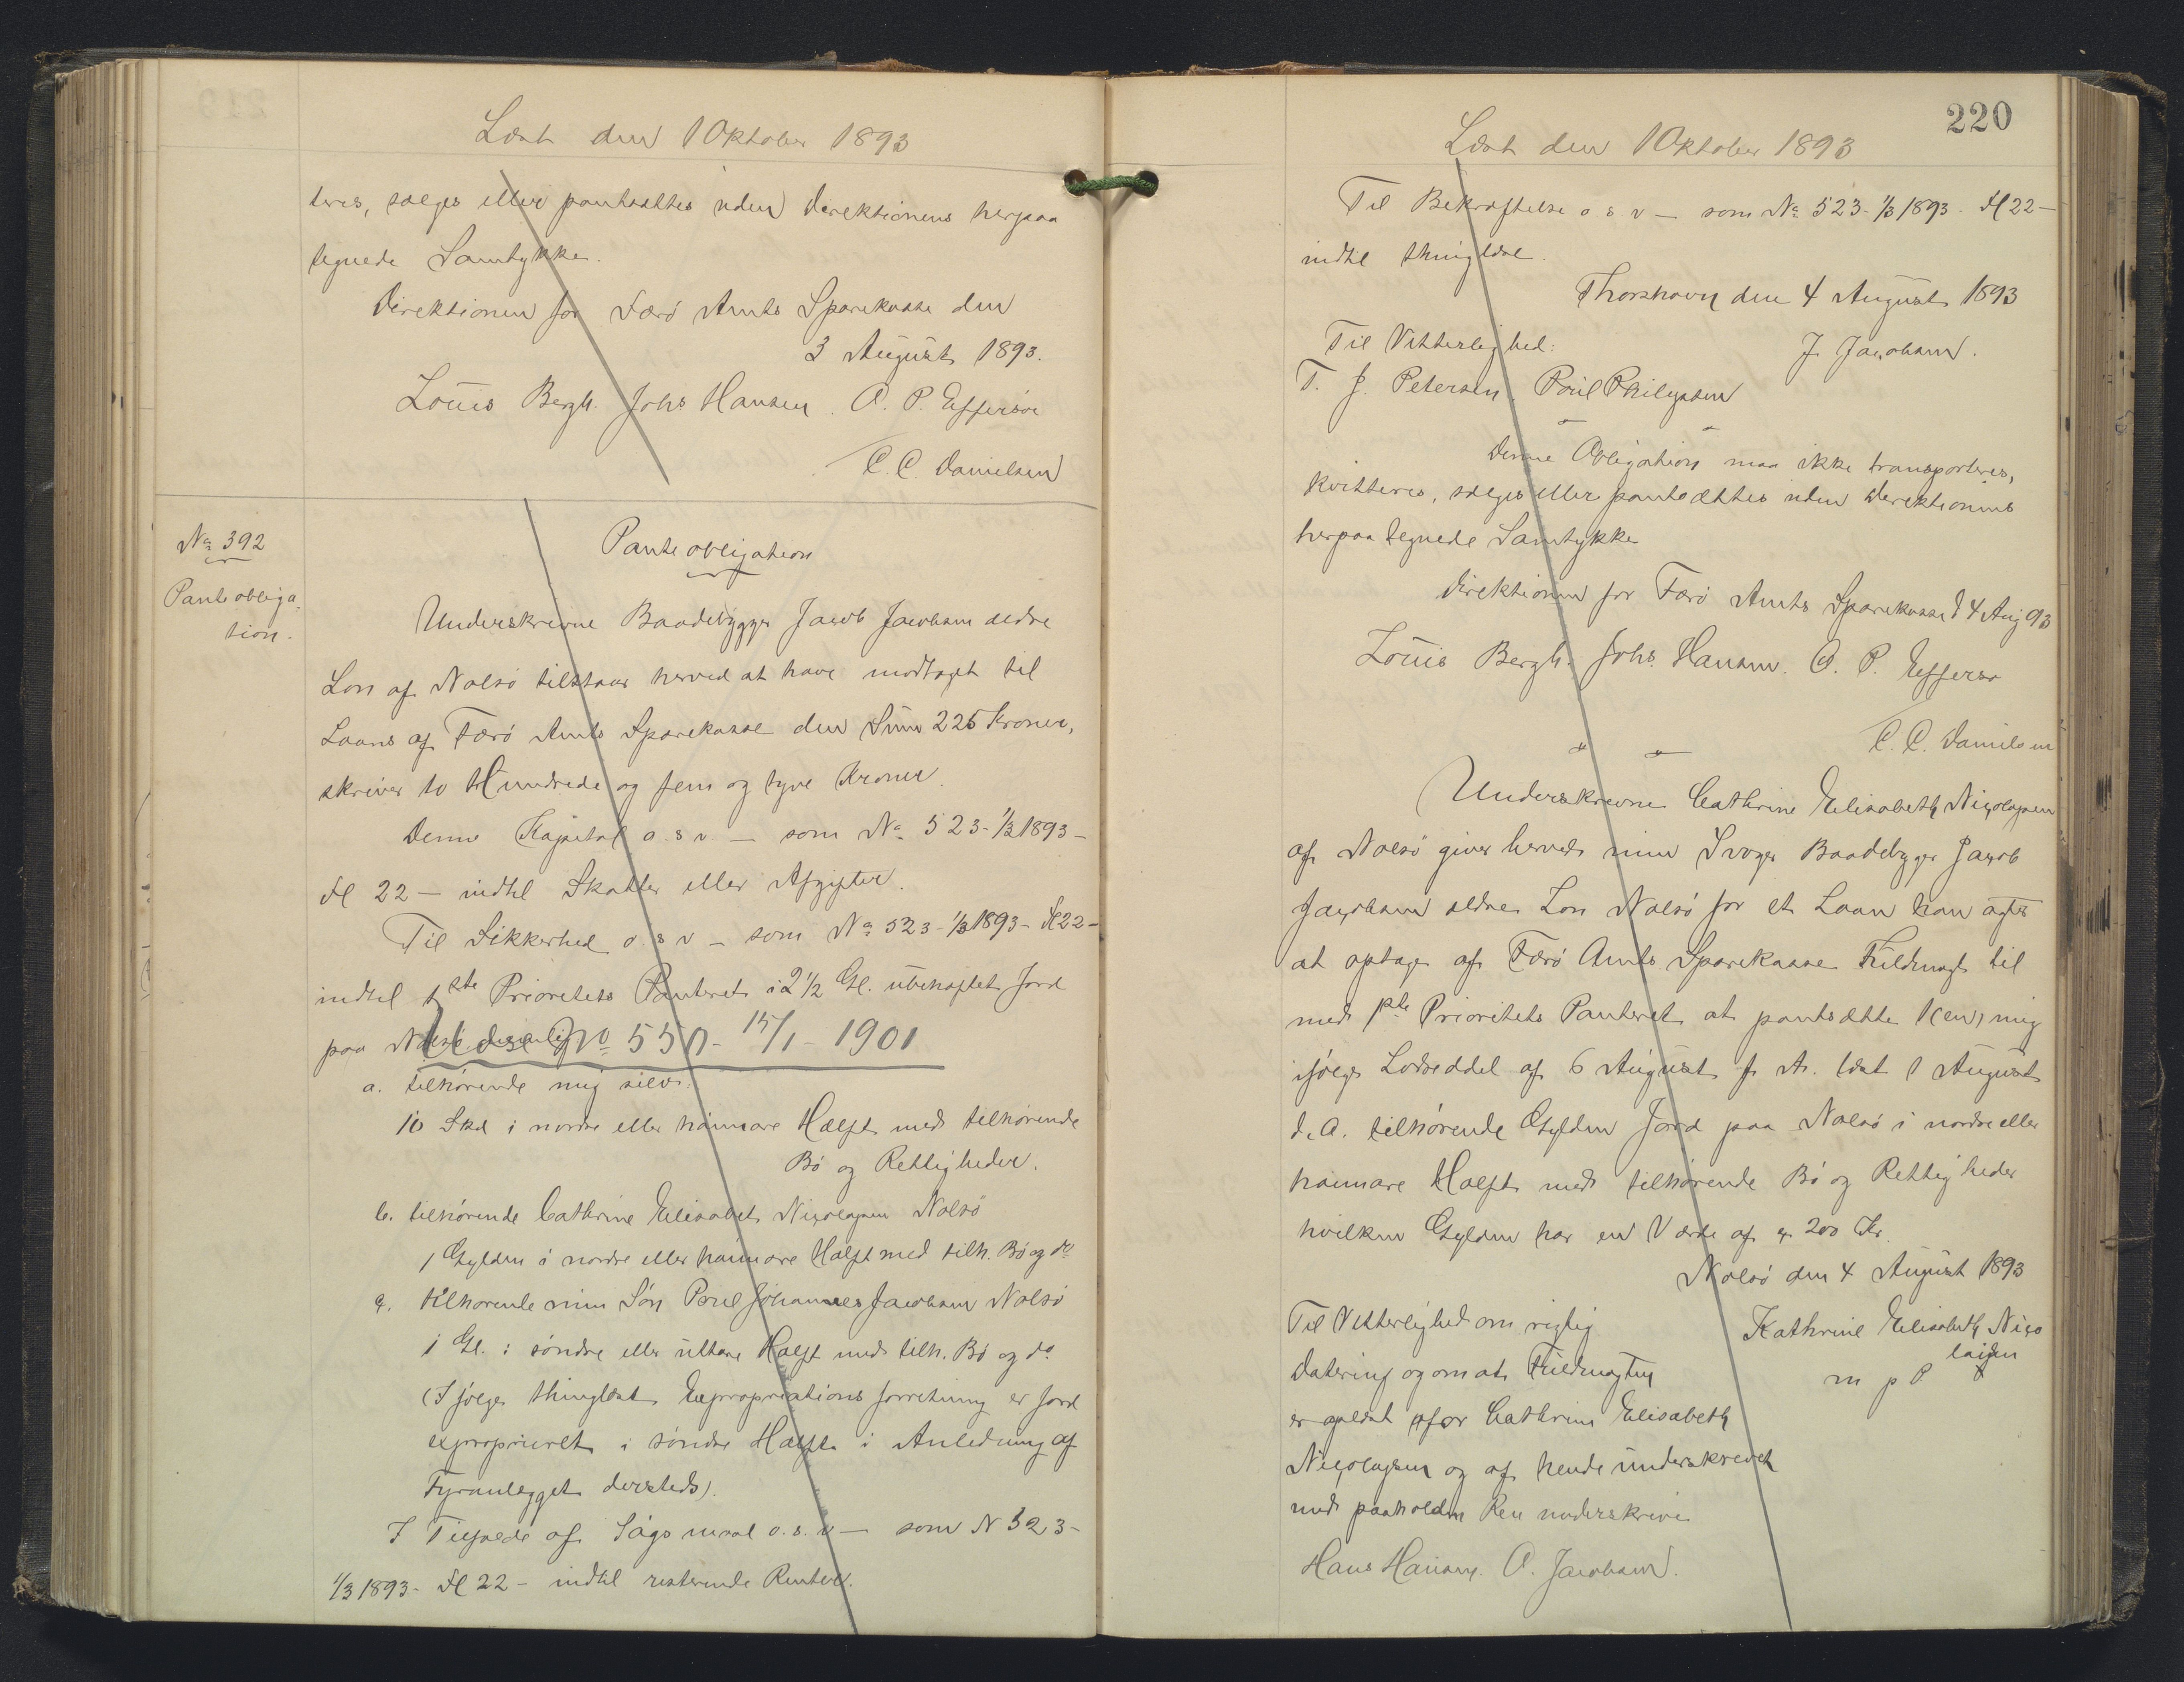 Læst den 1 Oktober 1893
teres, sælges eller pantsættes uden Direktionens herpaa
tegnede Samtykke.
Direktionen for Færø Amts Sparekasse den
3 August 1893.
Louis Bergh. Johs Hansen. O. P. Effersøe
C. C. Danielsen
No 392
Panteobliga-
tion.
Panteobligation
Underskrevne Baadebygger Jacob Jacobsen ældre
Lon af Nolsø tilstaar herved at have modtaget til
Laans af Færø Amts Sparekasse den Sum 225 Kroner,
skriver to Hundrede og fem og tyve Kroner.
Denne Kapital o. s. v. — som No 523 - 1/3 1893 -
Fl 22 — indtil Skatter eller Afgifter.
Til Sikkerhed o. s. v — som No 523 - 1/3 1893 - Fl 22 -
indtil 1ste Prioritets Panteret i 2 1/2 Gl. ubehæftet Jord
paa Nolsø
Udsl. No 550 - 15/1 - 1901
a. tilhørende mig selv:
10 Skd i nordre eller haimare Hælft med tilhørende
Bø og Rettigheder.
b. tilhørende Cathrine Elisabet Nicolajsen Nolsø
1 Gylden i nordre eller haimare Hælft med tilh. Bø og do
c. tilhørende min Søn Poul Johannes Jacobsen Nolsø
1 Gl. i søndre eller uttare Hælft med tilh. Bø og do
(Ifølge thinglæst Expropriations forretning er Jord
exproprieret i søndre Hælft i Anledning af
Fyranlægget dersteds).
I Tilfælde af Søgsmaal o. s. v — som N 523 -
1/3 1893 - Fl 22 - indtil resterende Renter.
220
Læst den 1 Oktober 1893
Til Bekræftelse o s v — som No 523 - 1/3 1893 - Fl 22 —
indtil thinglæse.
Thorshavn den 4 August 1893
Til Vitterlighed:
J. Jacobsen.
T. J. Petersen. Poul Philipsen
Denne Obligation maa ikke transporteres,
kvitteres, sælges eller pantsættes uden Direktionens
herpaa tegnede Samtykke
Direktionen for Færø Amts Sparekasse d 4 Aug 93
Louis Bergh. Johs. Hansen. O. P. Effersø
C. C. Danielsen
Underskrevne Cathrine Elisabeth Nicolajsen
af Nolsø giver herved min Svoger Baadebygger Jacob
Jacobsen ældre Lon Nolsø for et Laan han agter
at optage af Færø Amts Sparekasse Fuldmagt til
med 1ste Prioritets Panteret at pantsætte 1 (en) mig
ifølge Lodseddel af 6 August f. A. læst 1 August
d. A. tilhørende Gylden Jord paa Nolsø i nordre eller
haimare Hælft med tilhørende Bø og Rettigheder
hvilken Gylden har en Værdi af 200 Kr.
Nolsø den 4 August 1893
Til Vitterlighed om rigtig
Kathrine Elisabeth Nico
laisen
Datering og om at Fuldmagten
m p P
er oplæst for Cathrine Elisabeth
Nicolajsen og af hende underskrevet
med paaholden Pen underskrive
Hans Hansen. O. Jacobsen.